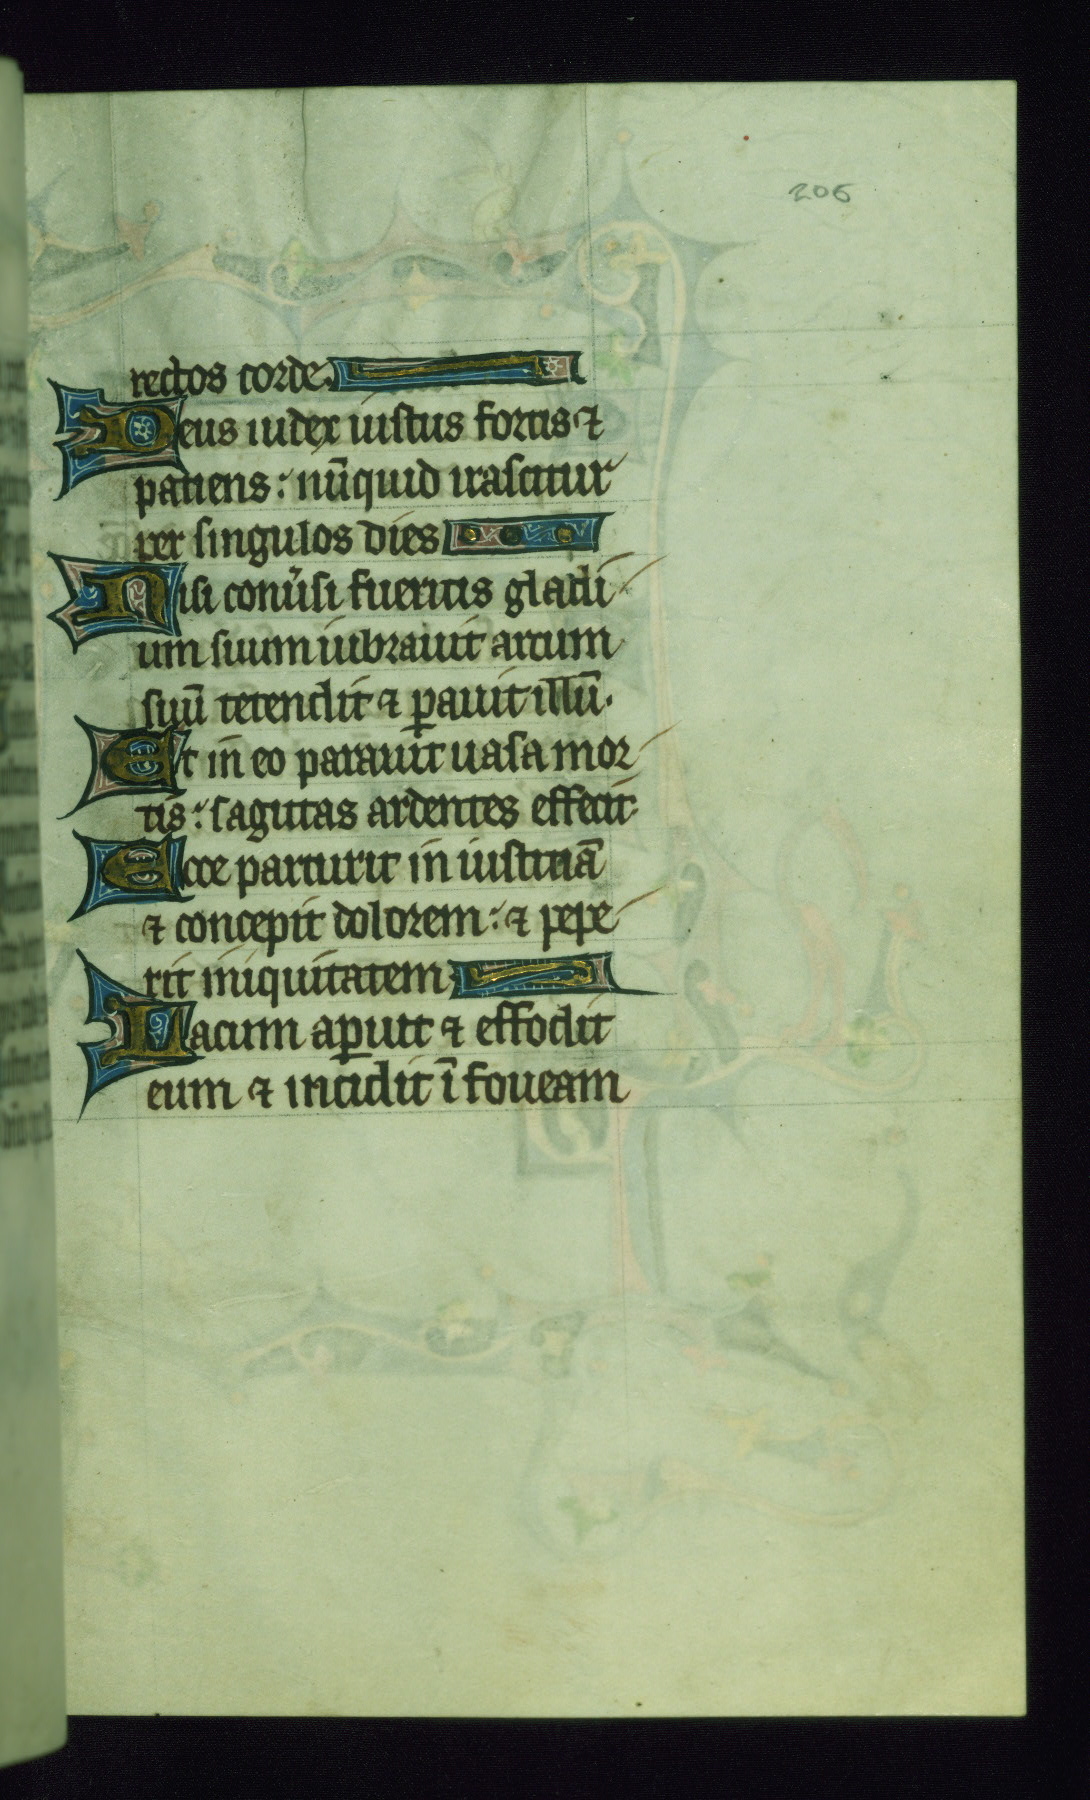 206
rectos corde.
Deus iudex iustus fortis ⁊
patiens: nūquid irascitur
per singulos dies
Nisi conu͛si fueritis gladi
um suum uibrauit arcum
suū tetendit ⁊ ꝑauit illū.
Et in eo parauit uasa mor
tis: sagittas ardentes effecit
Ecce parturit in iusticiā
⁊ concepit dolorem: ⁊ pepe
rit iniquitatem
Lacum aꝑuit ⁊ effodit
eum ⁊ incidit ī foueam